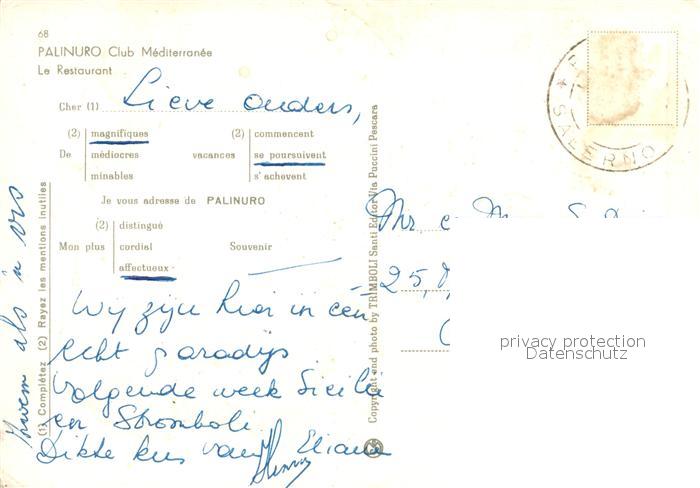 68
PALINURO Club Méditerranée
Le Restaurant
Cher (1) Lieve ouders,
(2) magnifiques (2) commencent
De médiocres vacances se poursuivent
minables s'achevent
Je vous adresse de PALINURO
(2) distingué
Mon plus cordial Souvenir
affectueux
Wij zijn hier in een
echt paradijs
Volgende week Sicilië
en Stromboli
Dikke kus van Eliane
Zwem als 'n vis
(1) Complétez (2) Rayez les mentions inutiles
Copyright and photo by TRIMBOLI Santi Editor Via Puccini Pescara
SALERNO
Mr
25,
privacy protection
Datenschutz